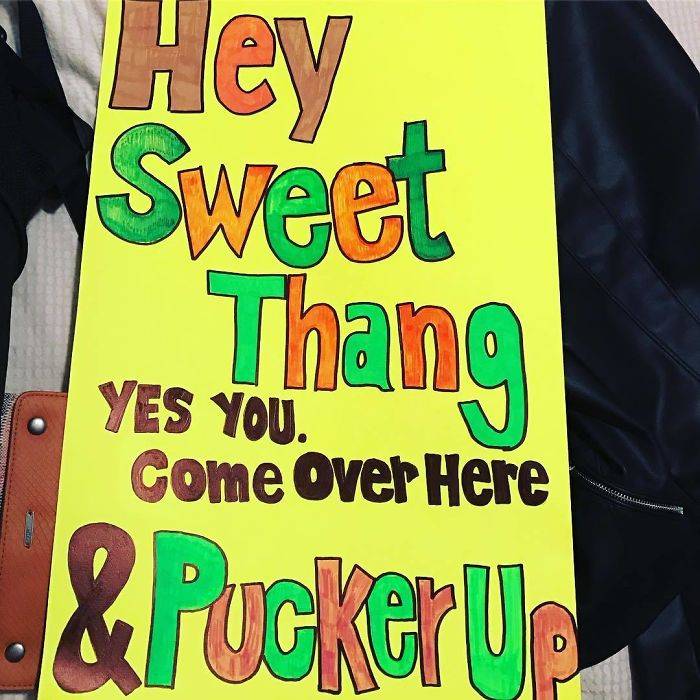 Hey
Sweet
Thang
YES YOU.
Come Over Here
& Pucker Up